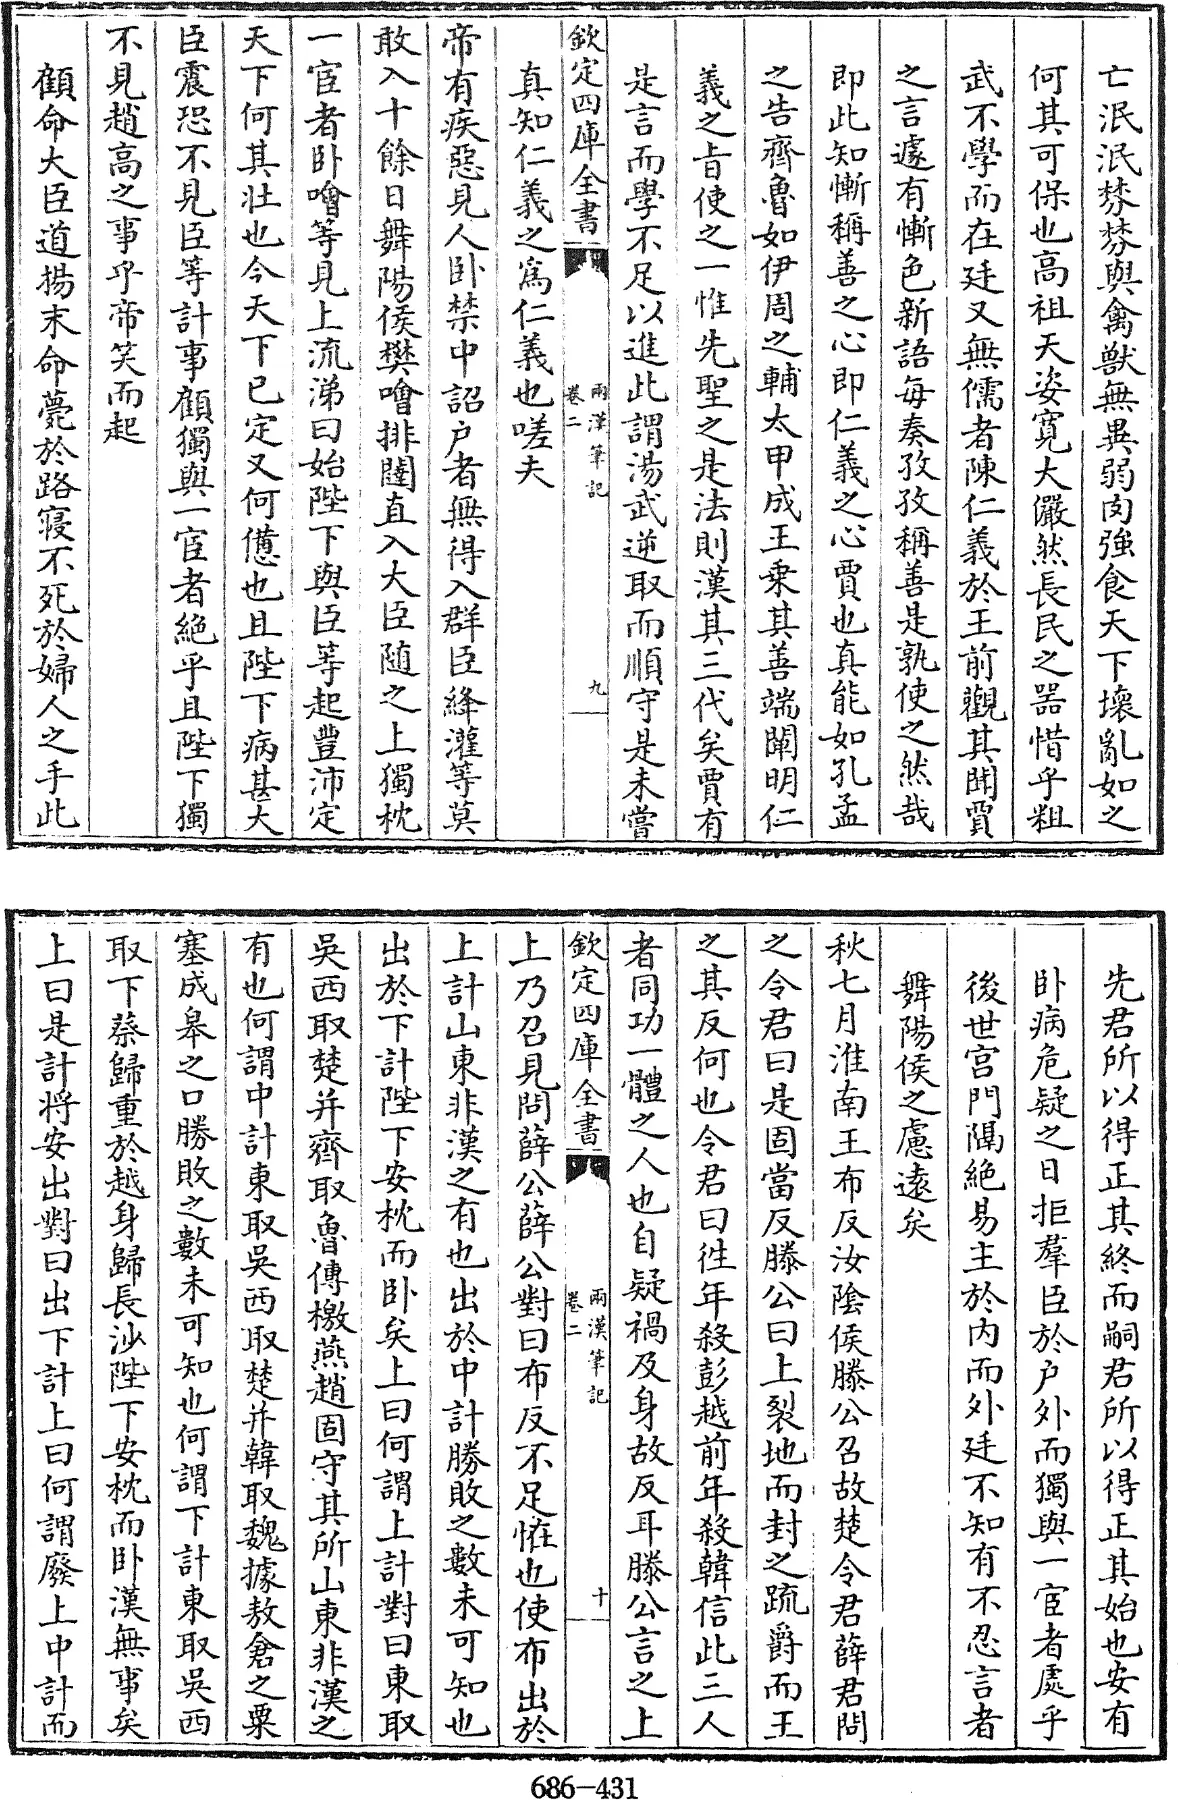 亡泯泯棼棼與禽獸無異弱肉強食天下壞亂如之
何其可保也高祖天姿寛大儼然長民之器惜乎粗
武不學而在廷又無儒者陳仁義於王前觀其聞賈
之言遽有慚色新語每奏孜孜稱善是孰使之然哉
即此知慚稱善之心即仁義之心賈也真能如孔孟
之告齊魯如伊周之輔太甲成王乗其善端闡明仁
義之旨使之一惟先聖之是法則漢其三代矣賈有
是言而學不足以進此謂湯武逆取而順守是未嘗
欽定四庫全書
兩漢筆記
卷二
九
真知仁義之為仁義也嗟夫
帝有疾惡見人卧禁中詔户者無得入群臣絳灌等莫
敢入十餘日舞陽侯樊噲排闥直入大臣随之上獨枕
一宦者卧噲等見上流涕曰始陛下與臣等起豐沛定
天下何其壯也今天下已定又何憊也且陛下病甚大
臣震恐不見臣等計事顧獨與一宦者絶乎且陛下獨
不見趙高之事乎帝笑而起
顧命大臣道揚末命薨於路寢不死於婦人之手此
先君所以得正其終而嗣君所以得正其始也安有
卧病危疑之日拒羣臣於户外而獨與一宦者處乎
後世宫門隔絶易主於内而外廷不知有不忍言者
舞陽侯之慮逺矣
秋七月淮南王布反汝隂侯滕公召故楚令君薛君問
之令君曰是固當反滕公曰上裂地而封之疏爵而王
之其反何也令君曰徃年殺彭越前年殺韓信此三人
者同功一體之人也自疑禍及身故反耳滕公言之上
欽定四庫全書
兩漢筆記
卷二
十
上乃召見問薛公薛公對曰布反不足怪也使布出於
上計山東非漢之有也出於中計勝敗之數未可知也
出於下計陛下安枕而卧矣上曰何謂上計對曰東取
吳西取楚并齊取魯傳檄燕趙固守其所山東非漢之
有也何謂中計東取吳西取楚并韓取魏據敖倉之粟
塞成臯之口勝敗之數未可知也何謂下計東取吳西
取下蔡歸重於越身歸長沙陛下安枕而卧漢無事矣
上曰是計將安出對曰出下計上曰何謂廢上中計而
686-431